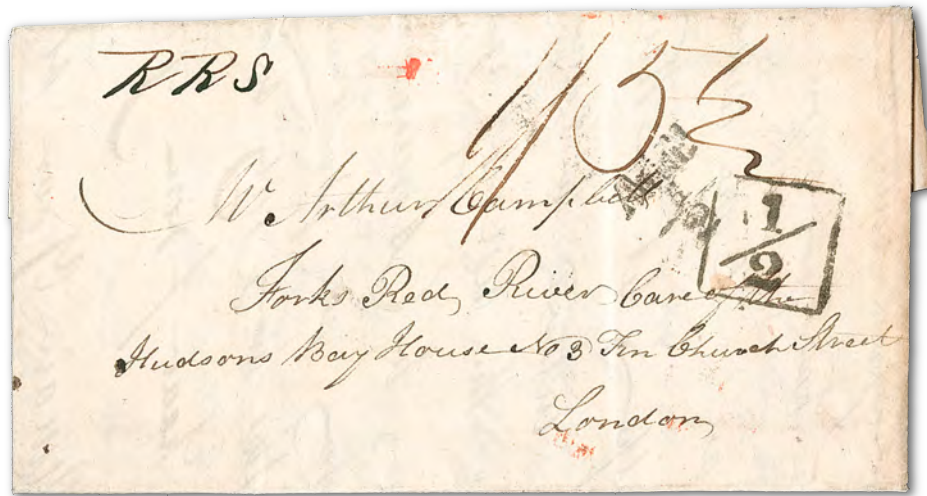 RRS
1/5½
Mr. Arthur Campbell
1/2
Forks Red River Care of the
Hudsons Bay House No 3 Fen Church Street
London